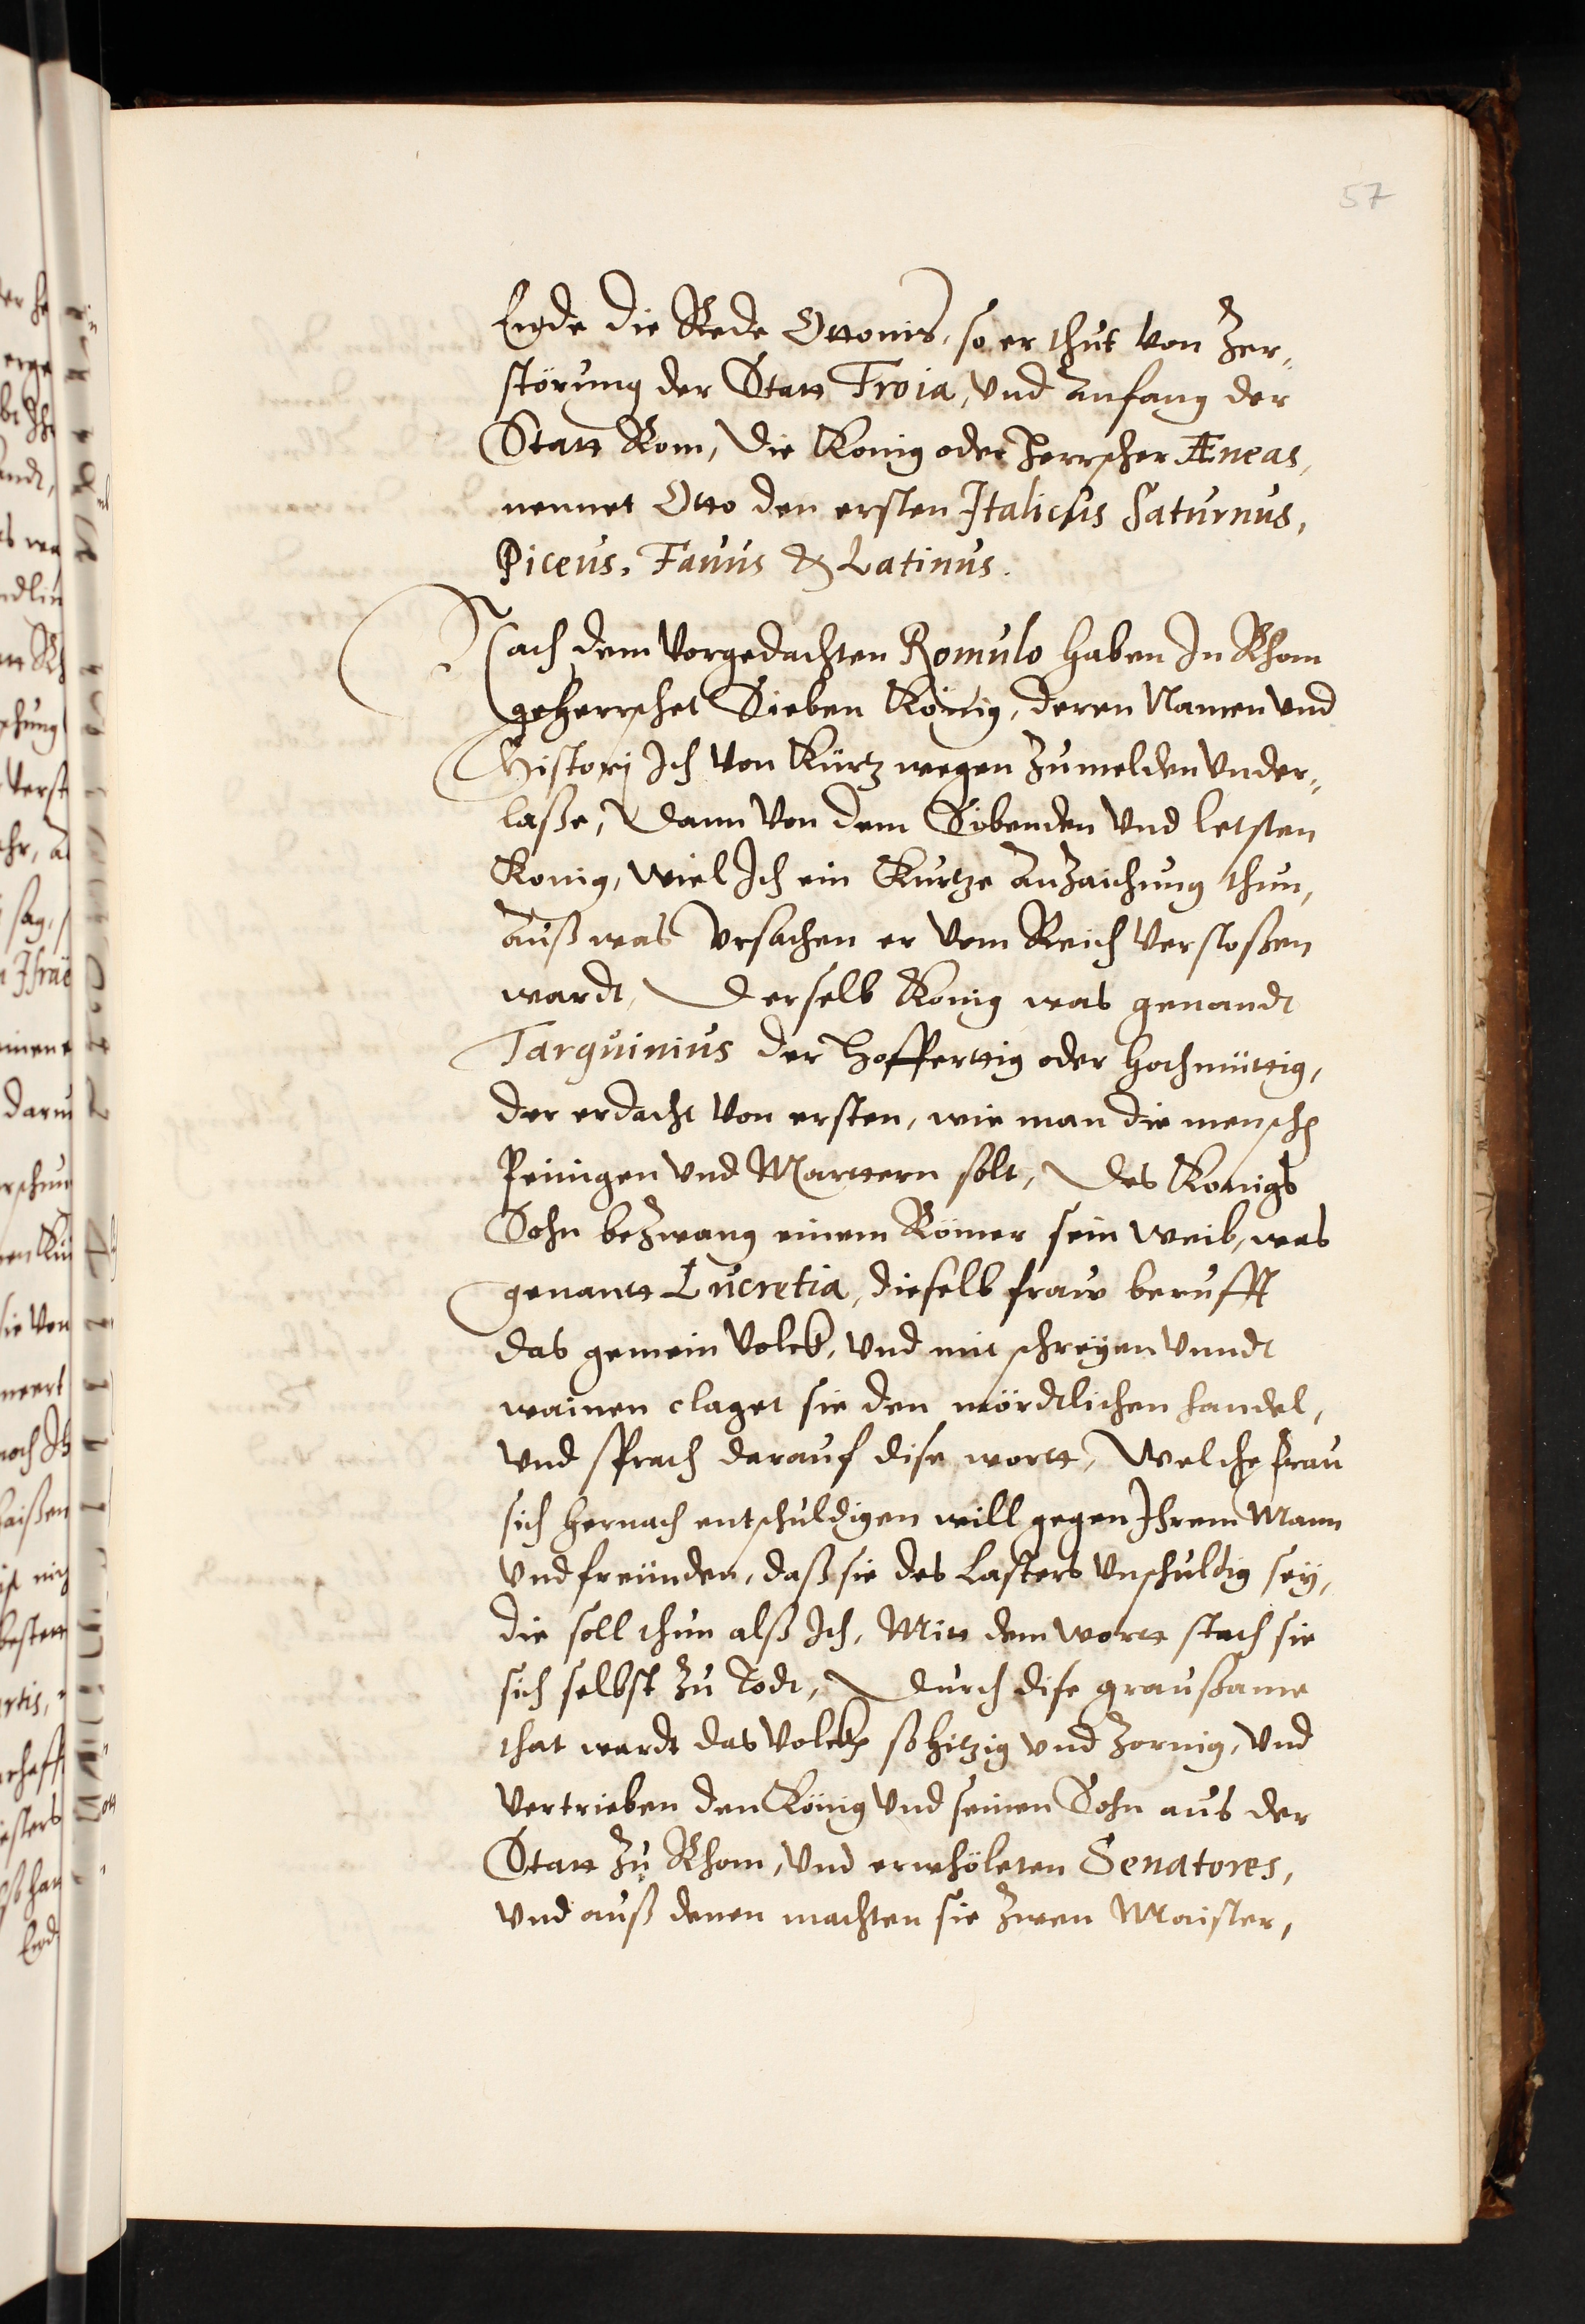 57
Ende die Rede Ottonis, so er thut von Zer„
störung der Statt Troia, und anfang der
Statt Rom, die Konig oder Herrscher Æneas,
nennet Otto den ersten Italicus Saturnus,
Piceus, Faunus & Latinus.
Nach dem vorgedachten Romulo haben In Rhom
geherrschet Sieben König, deren Namen und
Histori Ich von Kürtz wegen zumelden under„
laße, Dann von dem Sibenden und letsten
Konig, wiel Ich ein Kurtze anzaichung thun,
auß was ursachen er vom Reich verstoßen
wardt, Derselb Konig was genandt
Tarquinius der Hoffertig oder hochmüttig,
der erdacht von ersten, wie man die mensch
Peinigen und Marttern solt, Des Konigs
Sohn bezwang einem Römer sein weib, was
genantt Lucretia, dieselb fraw berufft
das gemein volck, und mit schreyen unndt
wainen claget sie den mördtlichen handel,
und sprach darauf dise wortt, Welche frau
sich hernach entschuldigen will gegen Ihrem Mann
und freünden, daß sie des Lasters unschuldig sey,
die soll thun alß Ich, Mitt dem wortt stach sie
sich selbst zu Todt, Durch dise graußame
that wardt das volckh so hitzig und zornig, und
vertrieben den König und seinen Sohn aus der
Statt zu Rhom, und erwhöleten Senatores,
und auß denen machten sie zwen Maister,